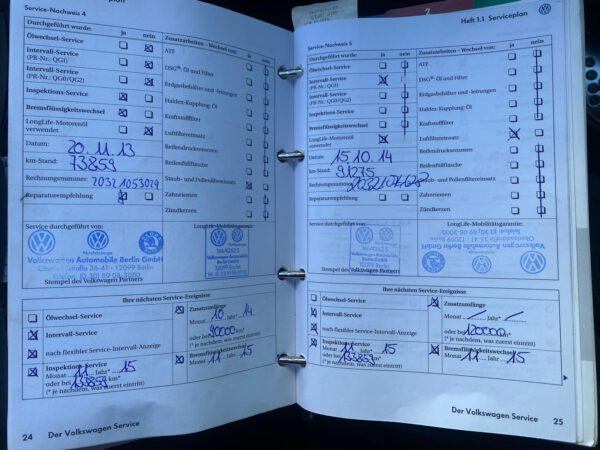 plan
Service-Nachweis 4
Durchgeführt wurde:
ja
nein
Zusatzarbeiten – Wechsel von:
ja
nein
Ölwechsel-Service
ATF
Intervall-Service
(PR-Nr.: QG1)
DSG®: Öl und Filter
Intervall-Service
(PR-Nr.: QG0/QG2)
Erdgasbehälter und -leitungen
Inspektions-Service
Haldex-Kupplung: Öl
Bremsflüssigkeitswechsel
Kraftstofffilter
LongLife-Motorenöl
verwendet
Luftfiltereinsatz
Datum:
20.11.13
Reifendrucksensoren
km-Stand:
73859
Reifenfüllflasche
Rechnungsnummer:
20321053029
Staub- und Pollenfiltereinsatz
Reparaturempfehlung
Zahnriemen
Zündkerzen
Service durchgeführt von:
LongLife-Mobilitätsgarantie:
Nutzfahrzeuge
Volkswagen Automobile Berlin GmbH
Oberlandstraße 36-41 • 12099 Berlin
Telefon (0 30) 89 08-3900
Stempel des Volkswagen Partners
Ihre nächsten Service-Ereignisse
Ölwechsel-Service
Zusatzumfänge
Monat 10 Jahr* 14
Intervall-Service
oder bei 90000 km*
(* je nachdem, was zuerst eintritt)
nach flexibler Service-Intervall-Anzeige
Inspektions-Service
Monat 11 Jahr* 15
oder bei 133859 km*
(* je nachdem, was zuerst eintritt)
Bremsflüssigkeitswechsel
Monat 11 Jahr 15
24
Der Volkswagen Service
Heft 1.1 Serviceplan
Service-Nachweis 5
Durchgeführt wurde:
ja
nein
Zusatzarbeiten – Wechsel von:
ja
nein
Ölwechsel-Service
ATF
Intervall-Service
(PR-Nr.: QG1)
DSG®: Öl und Filter
Intervall-Service
(PR-Nr.: QG0/QG2)
Erdgasbehälter und -leitungen
Inspektions-Service
Haldex-Kupplung: Öl
Bremsflüssigkeitswechsel
Kraftstofffilter
LongLife-Motorenöl
verwendet
Luftfiltereinsatz
Datum:
15.10.14
Reifendrucksensoren
km-Stand:
91275
Reifenfüllflasche
Rechnungsnummer:
Staub- und Pollenfiltereinsatz
Reparaturempfehlung
Zahnriemen
Zündkerzen
Service durchgeführt von:
LongLife-Mobilitätsgarantie:
Volkswagen Automobile Berlin GmbH
Oberlandstraße 36-41 • 12099 Berlin
Stempel des Volkswagen Partners
Ihre nächsten Service-Ereignisse
Ölwechsel-Service
Zusatzumfänge
Monat Jahr*
Intervall-Service
oder bei 120000 km*
(* je nachdem, was zuerst eintritt)
nach flexibler Service-Intervall-Anzeige
Inspektions-Service
Monat 11 Jahr* 15
oder bei 133859 km*
(* je nachdem, was zuerst eintritt)
Bremsflüssigkeitswechsel
Monat 11 Jahr 15
Der Volkswagen Service
25